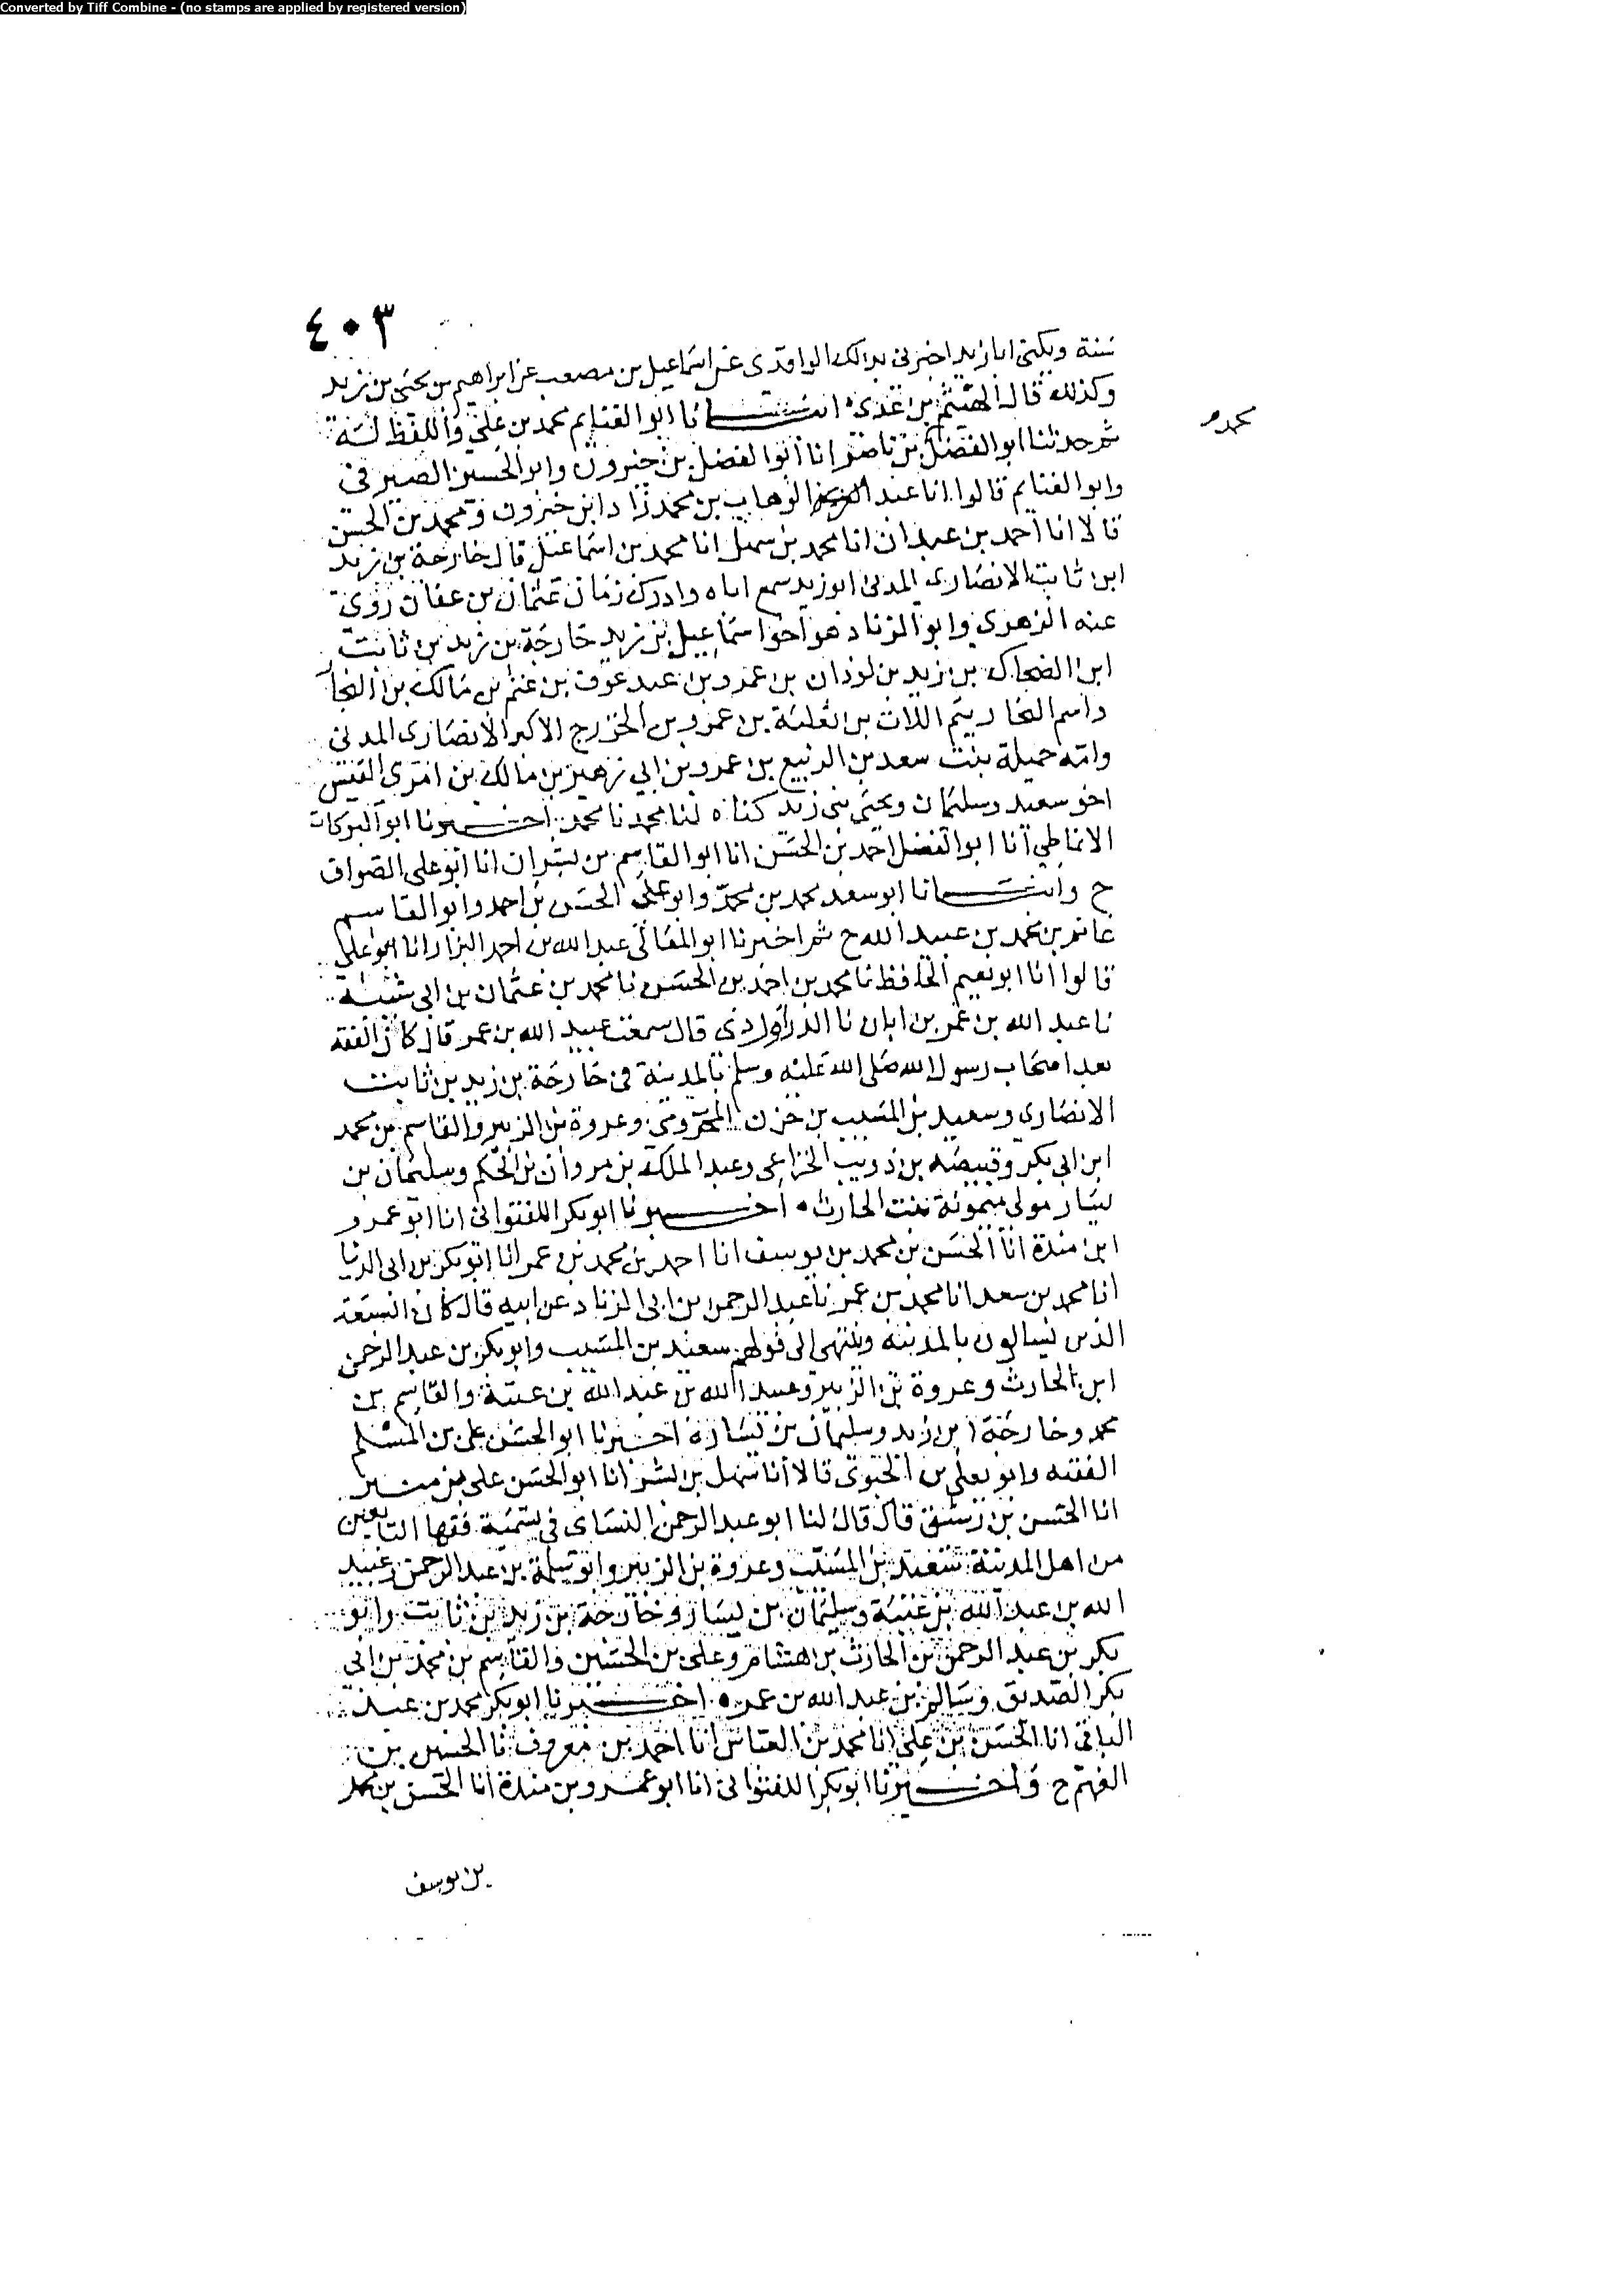 Converted by Tiff Combine - (no stamps are applied by registered version)
٤٠٣
سنة ويكنى ابا زيد اخبرني بذلك الواقدي عن اسماعيل بن مصعب عن ابراهيم بن يحيى بن زيد
وكذلك قال الهيثم بن عدي انبانا ابو الغنايم محمد بن علي واللفظ له
محمد
ثم حدثنا ابو الفضل بن ناصر انا ابو الفضل بن خيرون وابو الحسين الصيرفي
وابو الغنايم قالوا انا عبد الوهاب بن محمد زاد ابن خيرون ومحمد بن الحسن
قالا انا احمد بن عبدان انا محمد بن سهل انا محمد بن اسماعيل قال خارجة بن زيد
ابن ثابت الانصاري المدني ابو زيد سمع اباه وادرك زمان عثمان بن عفان روى
عنه الزهري وابو الزناد هو اخو اسماعيل بن زيد خارجة بن زيد بن ثابت
ابن الضحاك بن زيد بن لوذان بن عمرو بن عبد عوف بن غنم بن مالك بن النجار
واسم النجار تيم اللات بن ثعلبة بن عمرو بن الخزرج الاكبر الانصاري المدني
وامه جميلة بنت سعد بن الربيع بن عمرو بن ابي زهير بن مالك بن امرى القيس
اخو سعيد وسليمان ويحيى بني زيد كناه لنا محمد نا محمد اخبرنا ابو البركات
الانماطي انا ابو الفضل احمد بن الحسن انا ابو القاسم بن بشران انا ابو علي الصواف
ح وانبانا ابو سعد محمد بن محمد وابو علي الحسن بن احمد وابو القاسم
غانم بن محمد بن عبيد الله ح ثم اخبرنا ابو المعالي عبد الله بن احمد البزار انا ابو علي
قالوا انا ابو نعيم الحافظ نا محمد بن احمد بن الحسن نا محمد بن عثمان بن ابي شيبة
نا عبد الله بن عمر بن ابان نا الدراوردي قال سمعت عبيد الله بن عمر قال كان الفقه
بعد اصحاب رسول الله صلى الله عليه وسلم بالمدينة في خارجة بن زيد بن ثابت
الانصاري وسعيد بن المسيب بن حزن المخزومي وعروة بن الزبير والقاسم بن محمد
ابن ابي بكر وقبيصة بن ذويب الخزاعي وعبد الملك بن مروان بن الحكم وسليمان بن
يسار مولى ميمونة بنت الحارث اخبرنا ابو بكر اللفتواني انا ابو عمرو
ابن مندة انا الحسن بن محمد بن يوسف انا احمد بن محمد بن عمر انا ابو بكر بن ابي الدنيا
انا محمد بن سعد انا محمد بن عمر نا عبد الرحمن بن ابي الزناد عن ابيه قال كان السبعة
الذين يسالون بالمدينة وينتهى الى قولهم سعيد بن المسيب وابو بكر بن عبد الرحمن
ابن الحارث وعروة بن الزبير وعبيد الله بن عبد الله بن عتبة والقاسم بن
محمد وخارجة ابن زيد وسليمان بن يسار ه اخبرنا ابو الحسن علي بن المسلم
الفقيه وابو يعلى بن الحبوبي قالا انا سهل بن بشر انا ابو الحسن علي بن منير
انا الحسن بن رشيق قال قال لنا ابو عبد الرحمن النساي في تسمية فقها التابعين
من اهل المدينة سعيد بن المسيب وعروة بن الزبير وابو سلمة بن عبد الرحمن وعبيد
الله بن عبد الله بن عتبة وسليمان بن يسار وخارجة بن زيد بن ثابت وابو
بكر بن عبد الرحمن بن الحارث بن هشام وعلي بن الحسين والقاسم بن محمد بن ابي
بكر الصديق وسالم بن عبد الله بن عمر ه اخبرنا ابو بكر محمد بن عبد
الباقي انا الحسن بن علي انا محمد بن العباس انا احمد بن معروف نا الحسين بن
الفهم ح واخبرنا ابو بكر اللفتواني انا ابو عمرو بن مندة انا الحسن بن محمد
بن يوسف